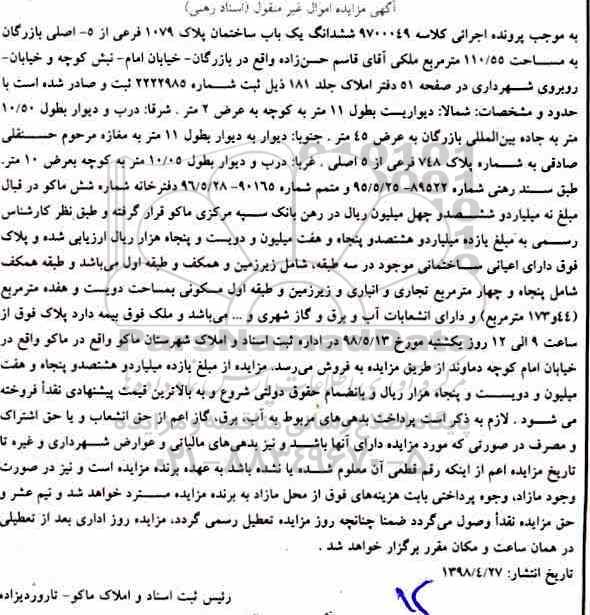 آگهی مزایده اموال غیر منقول (اسناد رهنی)
به موجب پرونده اجرائی کلاسه ۹۷۰۰۰۴۹ ششدانگ یک باب ساختمان پلاک ۱۰۷۹ فرعی از ۵- اصلی بازرگان
به مساحت ۱۱۰/۵۵ مترمربع ملکی آقای قاسم حسن‌زاده واقع در بازرگان- خیابان امام- نبش کوچه و خیابان-
روبروی شهرداری در صفحه ۵۱ دفتر املاک جلد ۱۸۱ ذیل ثبت شماره ۲۲۲۲۹۸۵ ثبت و صادر شده است با
حدود و مشخصات: شمالا: دیواریست بطول ۱۱ متر به کوچه به عرض ۲ متر . شرقا: درب و دیوار بطول ۱۰/۵۰
متر به جاده بین‌المللی بازرگان به عرض ۴۵ متر . جنوبا: دیوار به دیوار بطول ۱۱ متر به مغازه مرحوم حسنقلی
صادقی به شماره پلاک ۷۴۸ فرعی از ۵ اصلی . غربا: درب و دیوار بطول ۱۰/۰۵ متر به کوچه بعرض ۱۰ متر.
طبق سند رهنی شماره ۸۹۵۲۲- ۹۵/۵/۲۵ و متمم شماره ۹۰۱۶۵- ۹۶/۵/۲۸ دفترخانه شماره شش ماکو در قبال
مبلغ نه میلیاردو ششصدو چهل میلیون ریال در رهن بانک سپه مرکزی ماکو قرار گرفته و طبق نظر کارشناس
رسمی به مبلغ یازده میلیاردو هشتصدو پنجاه و هفت میلیون و دویست و پنجاه هزار ریال ارزیابی شده و پلاک
فوق دارای اعیانی ساختمانی موجود در سه طبقه، شامل زیرزمین و همکف و طبقه اول می‌باشد و طبقه همکف
شامل پنجاه و چهار مترمربع تجاری و انباری و زیرزمین و طبقه اول مسکونی بمساحت دویست و هفده مترمربع
(۴۴و۱۷۳ مترمربع) و دارای انشعابات آب و برق و گاز شهری و ... می‌باشد و ملک فوق بیمه دارد پلاک فوق از
ساعت ۹ الی ۱۲ روز یکشنبه مورخ ۹۸/۵/۱۳ در اداره ثبت اسناد و املاک شهرستان ماکو واقع در ماکو واقع در
خیابان امام کوچه دماوند از طریق مزایده به فروش می‌رسد. مزایده از مبلغ یازده میلیاردو هشتصدو پنجاه و هفت
میلیون و دویست و پنجاه هزار ریال و بانضمام حقوق دولتی شروع و به بالاترین قیمت پیشنهادی نقدأ فروخته
می شود . لازم به ذکر است پرداخت بدهی‌های مربوط به آب، برق، گاز اعم از حق انشعاب و یا حق اشتراک
و مصرف در صورتی که مورد مزایده دارای آنها باشد و نیز بدهی‌های مالیاتی و عوارض شهرداری و غیره تا
تاریخ مزایده اعم از اینکه رقم قطعی آن معلوم شده یا نشده باشد به عهده برنده مزایده است و نیز در صورت
وجود مازاد، وجوه پرداختی بابت هزینه‌های فوق از محل مازاد به برنده مزایده مسترد خواهد شد و نیم عشر و
حق مزایده نقدأ وصول می‌گردد ضمنا چنانچه روز مزایده تعطیل رسمی گردد، مزایده روز اداری بعد از تعطیلی
در همان ساعت و مکان مقرر برگزار خواهد شد .
تاریخ انتشار: ۱۳۹۸/۴/۲۷
رئیس ثبت اسناد و املاک ماکو- تاروردیزاده
۰۲۱-۸۸۳۴۹۶۷۰-۵